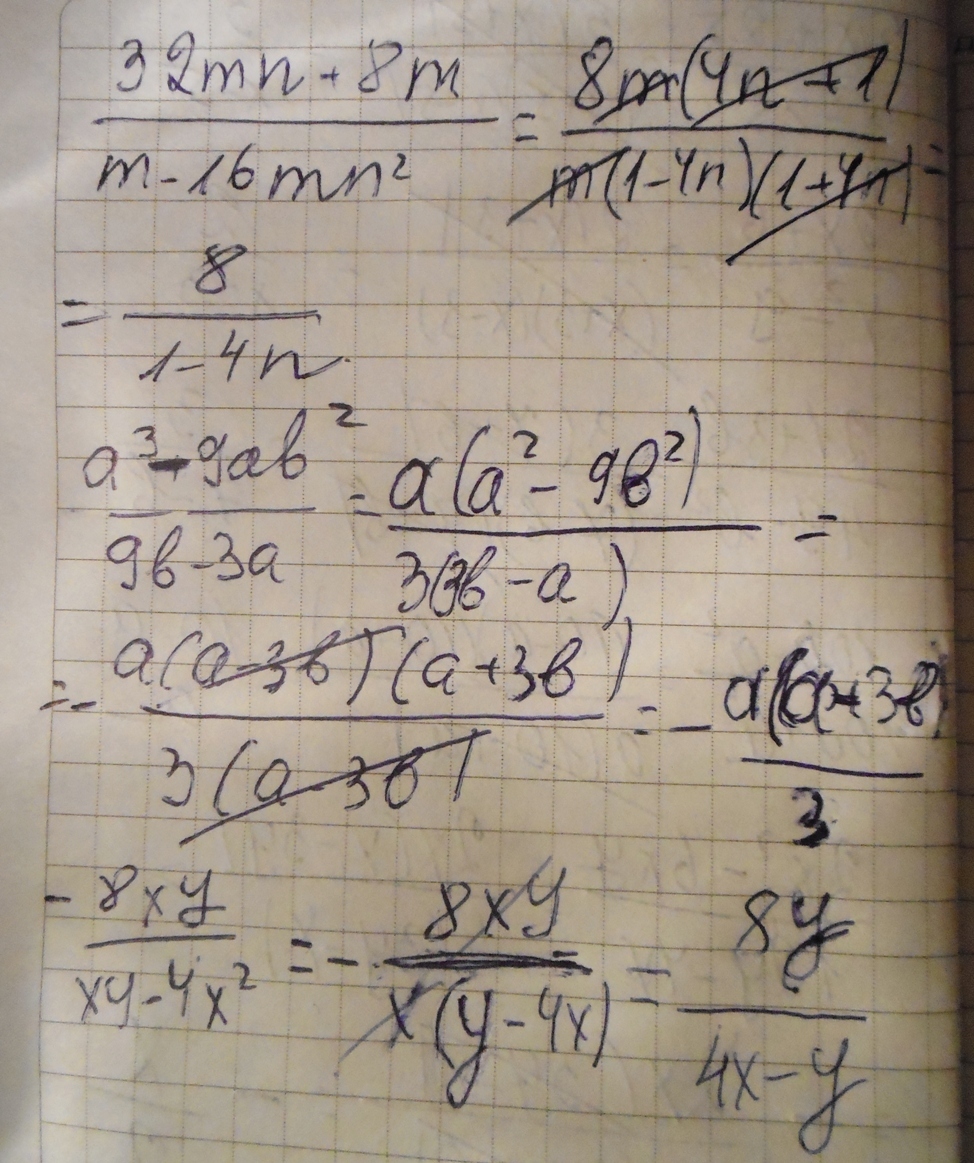 32mn + 8m / m - 16mn² = 8m(4n + 1) / m(1 - 4n)(1 + 4n) =
= 8 / 1 - 4n
a³ - 9ab² / 9b - 3a = a(a² - 9b²) / 3(3b - a) =
= - a(a - 3b)(a + 3b) / 3(a - 3b) = - a(a + 3b) / 3
- 8xy / xy - 4x² = - 8xy / x(y - 4x) = 8y / 4x - y